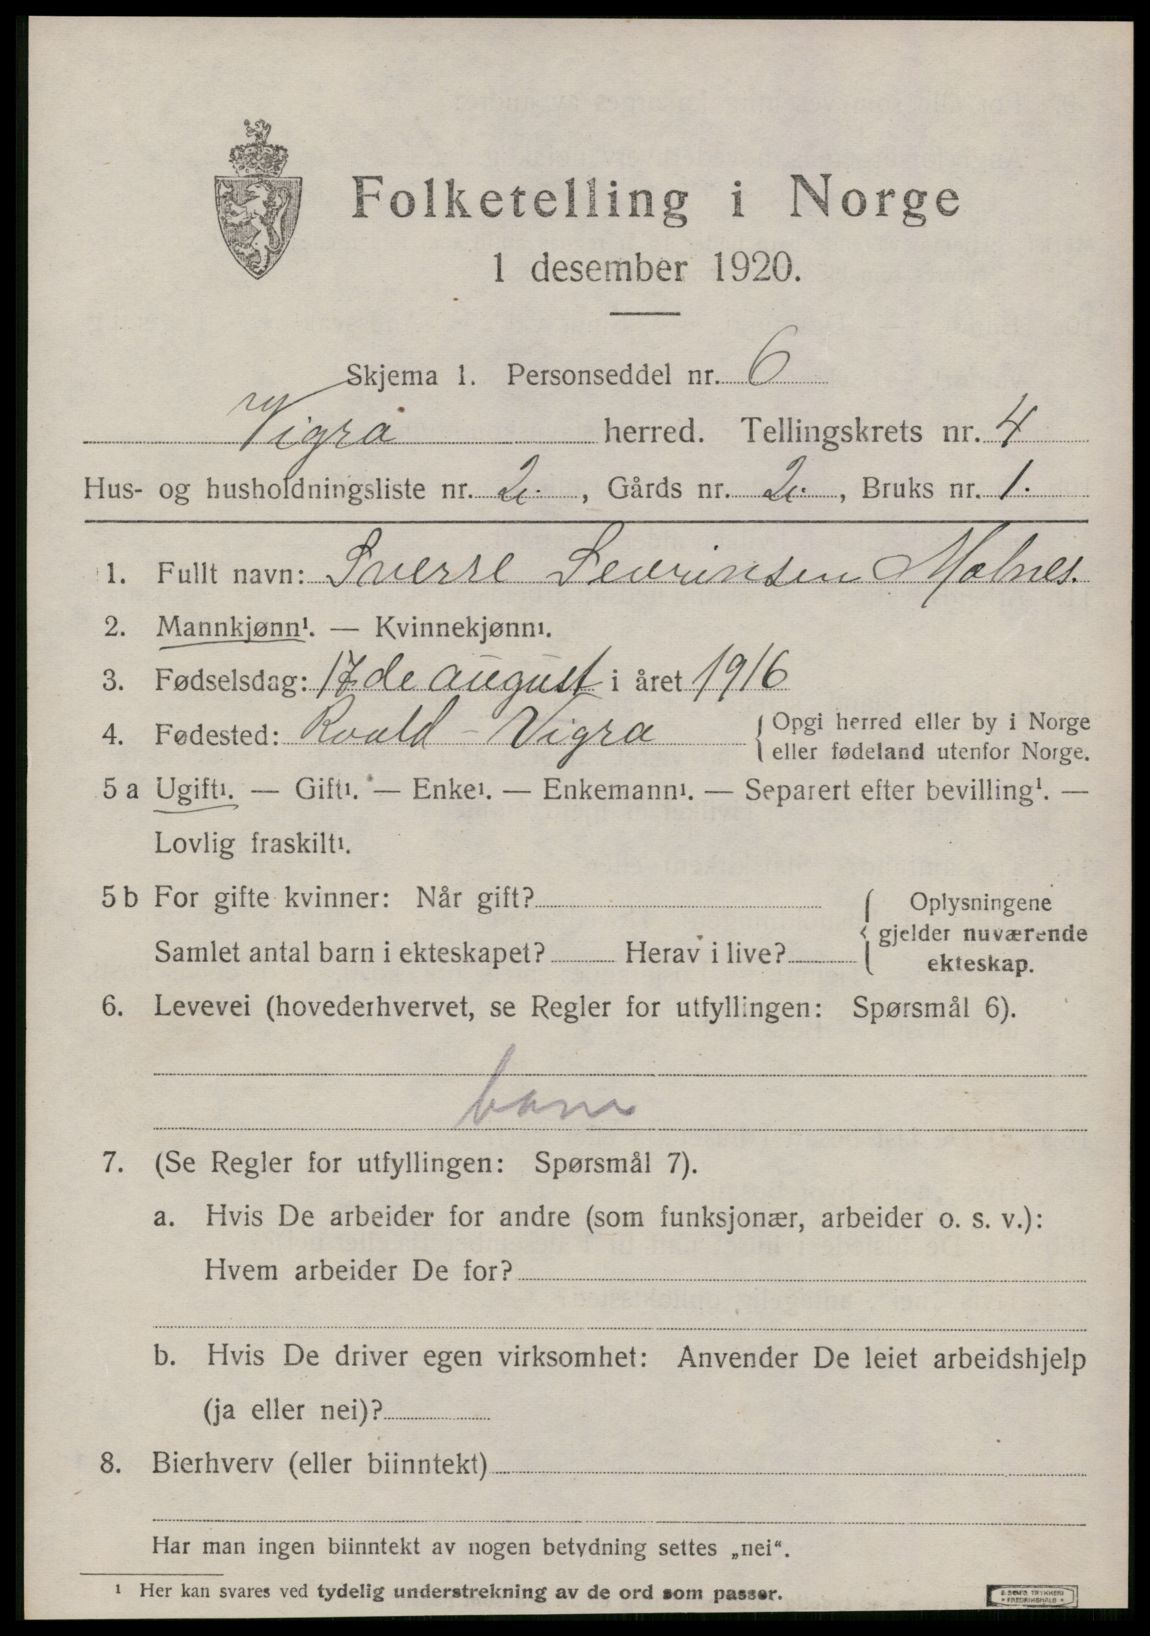 Folketelling i Norge
1 desember 1920.
Skjema 1. Personseddel nr. 6
Vigra herred. Tellingskrets nr. 4
Hus- og husholdningsliste nr. 2. , Gårds nr. 2. , Bruks nr. 1.
1. Fullt navn: Sverre Severinsen Molnes.
2. Mannkjønn¹. — Kvinnekjønn¹.
3. Fødselsdag: 17de august i året 1916
4. Fødested: Roald - Vigra { Opgi herred eller by i Norge
eller fødeland utenfor Norge.
5 a Ugift¹. — Gift¹. — Enke¹. — Enkemann¹. — Separert efter bevilling¹. —
Lovlig fraskilt¹.
5 b For gifte kvinner: Når gift? { Oplysningene
gjelder nuværende
Samlet antal barn i ekteskapet? Herav i live? ekteskap.
6. Levevei (hovederhvervet, se Regler for utfyllingen: Spørsmål 6).
barn
7. (Se Regler for utfyllingen: Spørsmål 7).
a. Hvis De arbeider for andre (som funksjonær, arbeider o. s. v.):
Hvem arbeider De for?
b. Hvis De driver egen virksomhet: Anvender De leiet arbeidshjelp
(ja eller nei)?
8. Bierhverv (eller biinntekt)
Har man ingen biinntekt av nogen betydning settes „nei“.
¹ Her kan svares ved tydelig understrekning av de ord som passer.